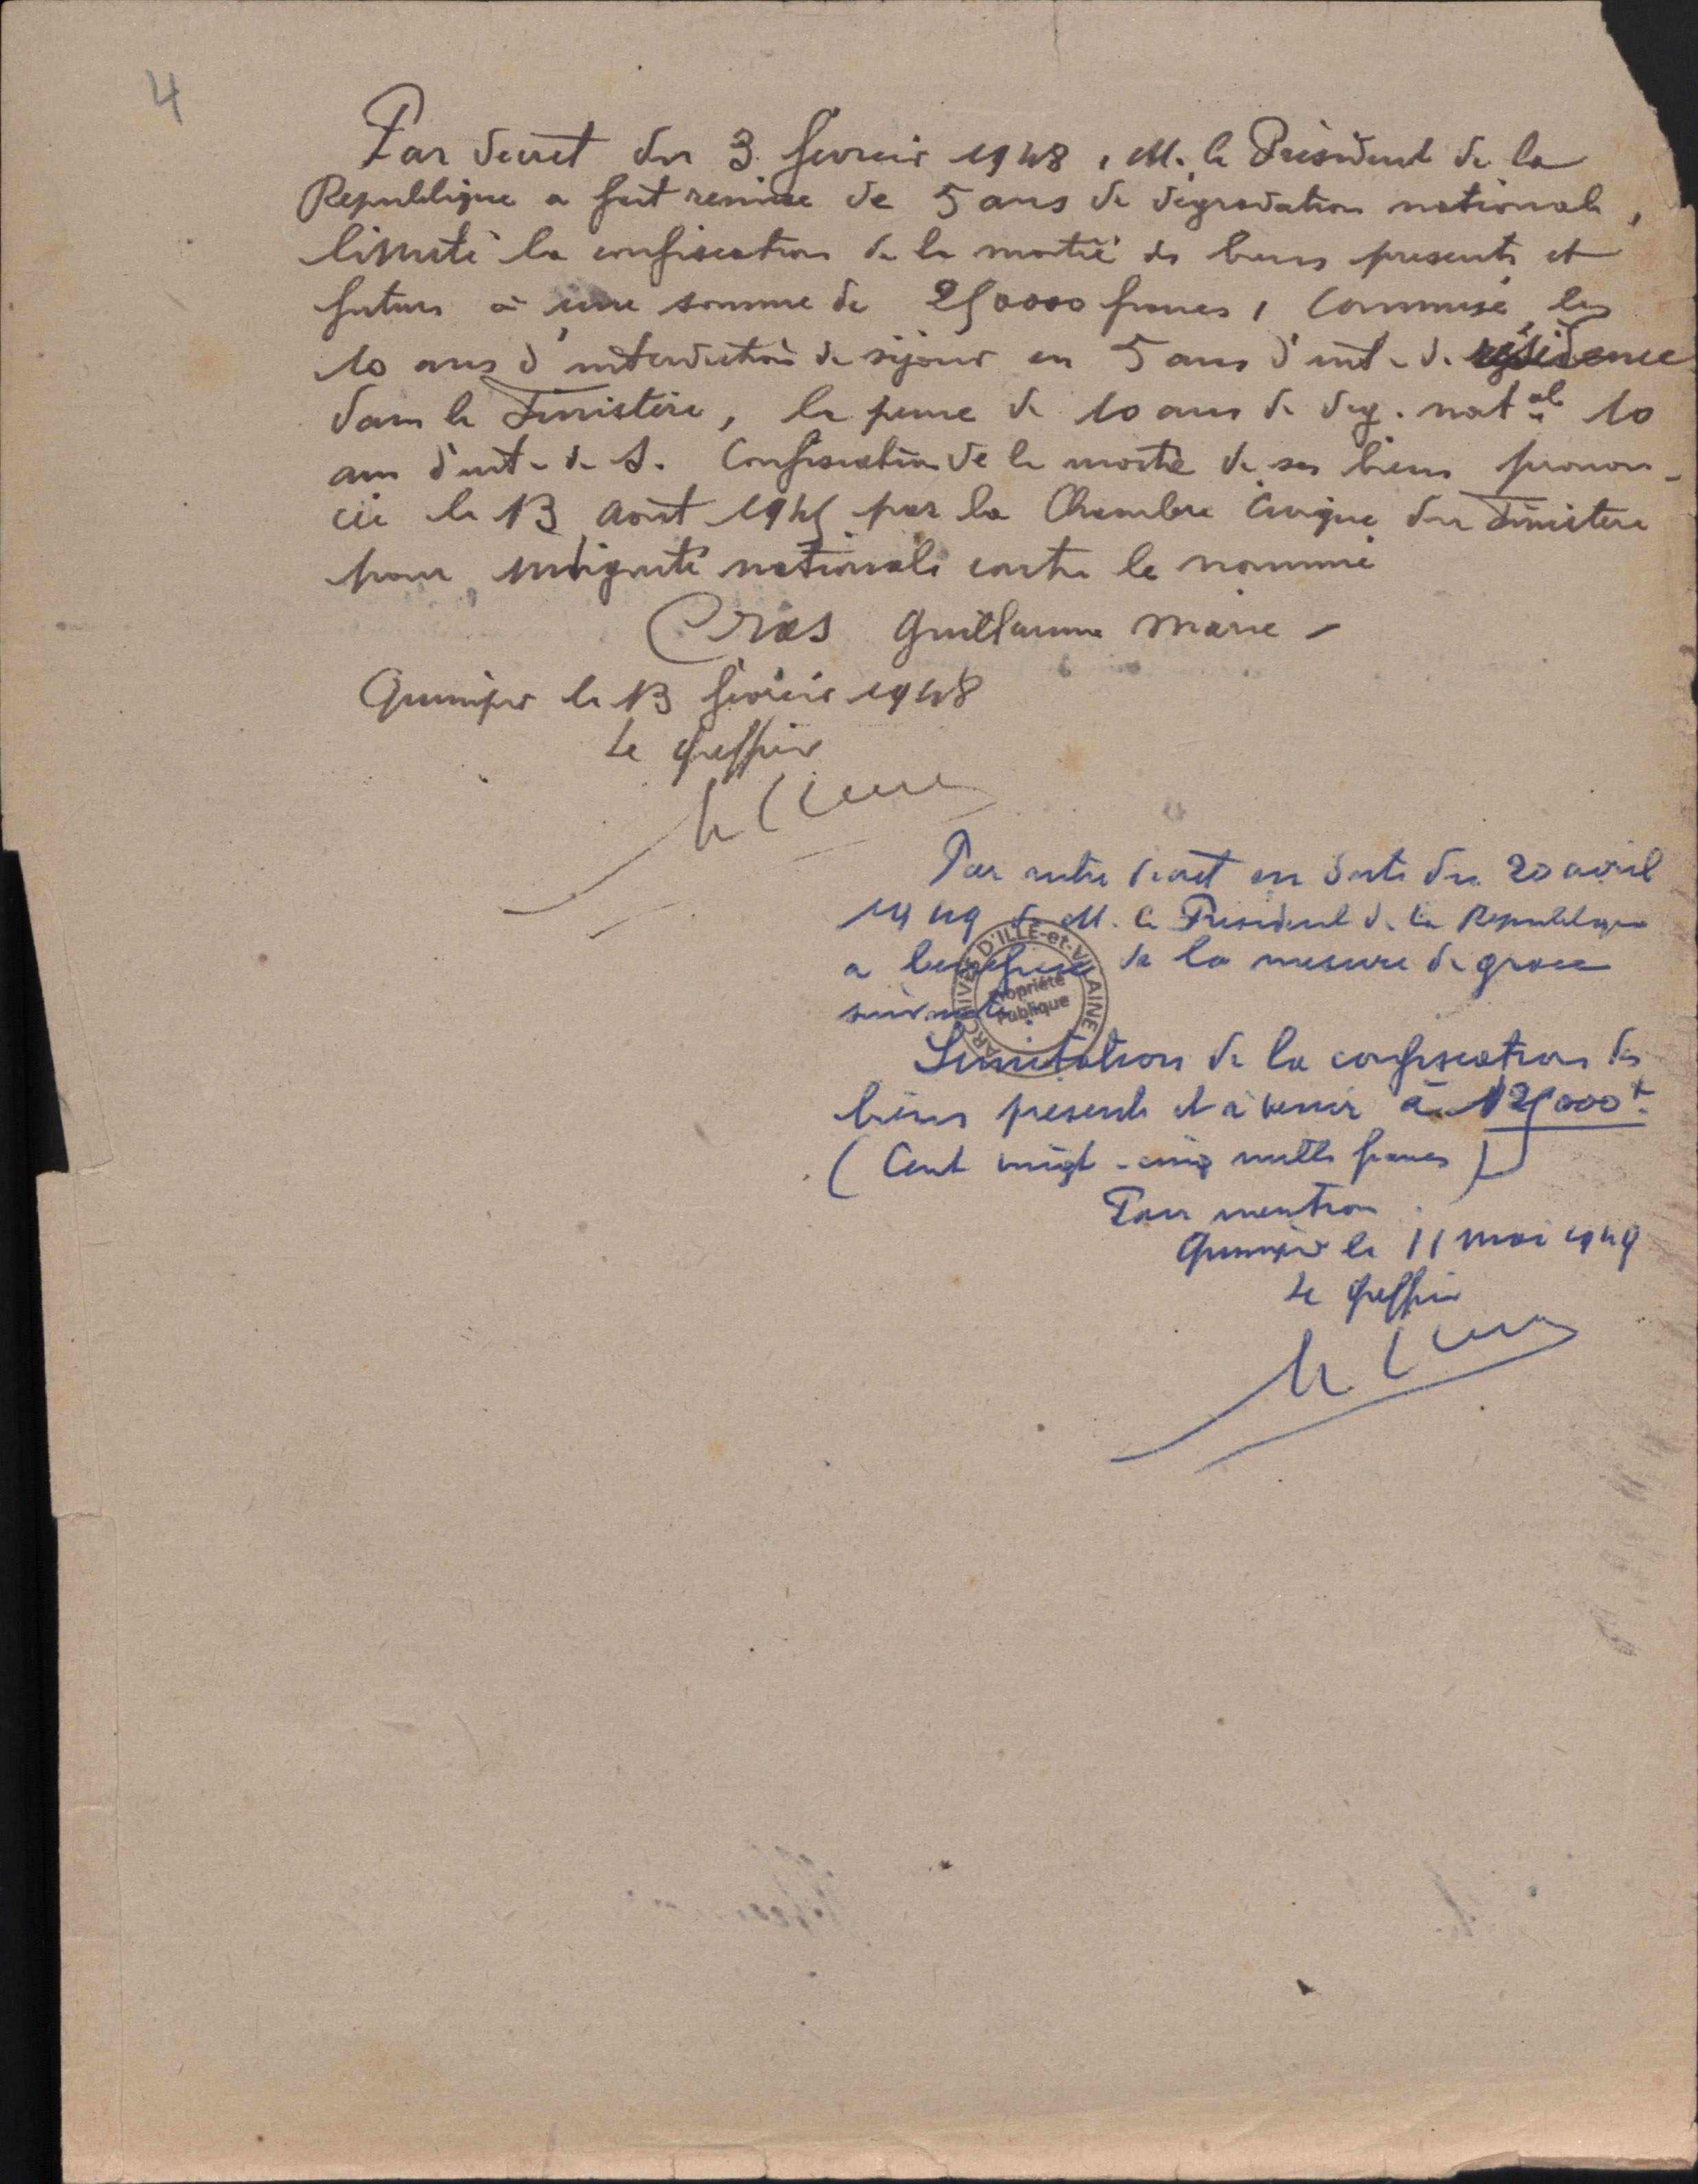 4
Par décret du 3 février 1948, M. le Président de la
République a fait remise de 5 ans de dégradation nationale,
limité la confiscation de la moitié des biens présents et
futurs à une somme de 250000 francs, commué les
10 ans d'interdiction de séjour en 5 ans d'int. de résidence
dans le Finistère, la peine de 10 ans de deg. nat.ale 10
ans d'int. de S. Confiscation de la moitié de ses biens pronon-
cée le 13 Août 1945 par la Chambre Civique du Finistère
pour indignité nationale contre le nommé
Cras Guillaume Marie -
Quimper le 13 février 1948
Le Greffier
Par autre décret en date du 20 avril
1949 de M. le Président de la République
a bénéficié de la mesure de grâce
suivante :
Limitation de la confiscation des
biens présents et à venir à 125000 f.
(Cent vingt-cinq mille francs)
Pour mention.
Quimper le 11 mai 1949
Le Greffier
ARCHIVES D'ILLE-et-VILAINE
Propriété
Publique